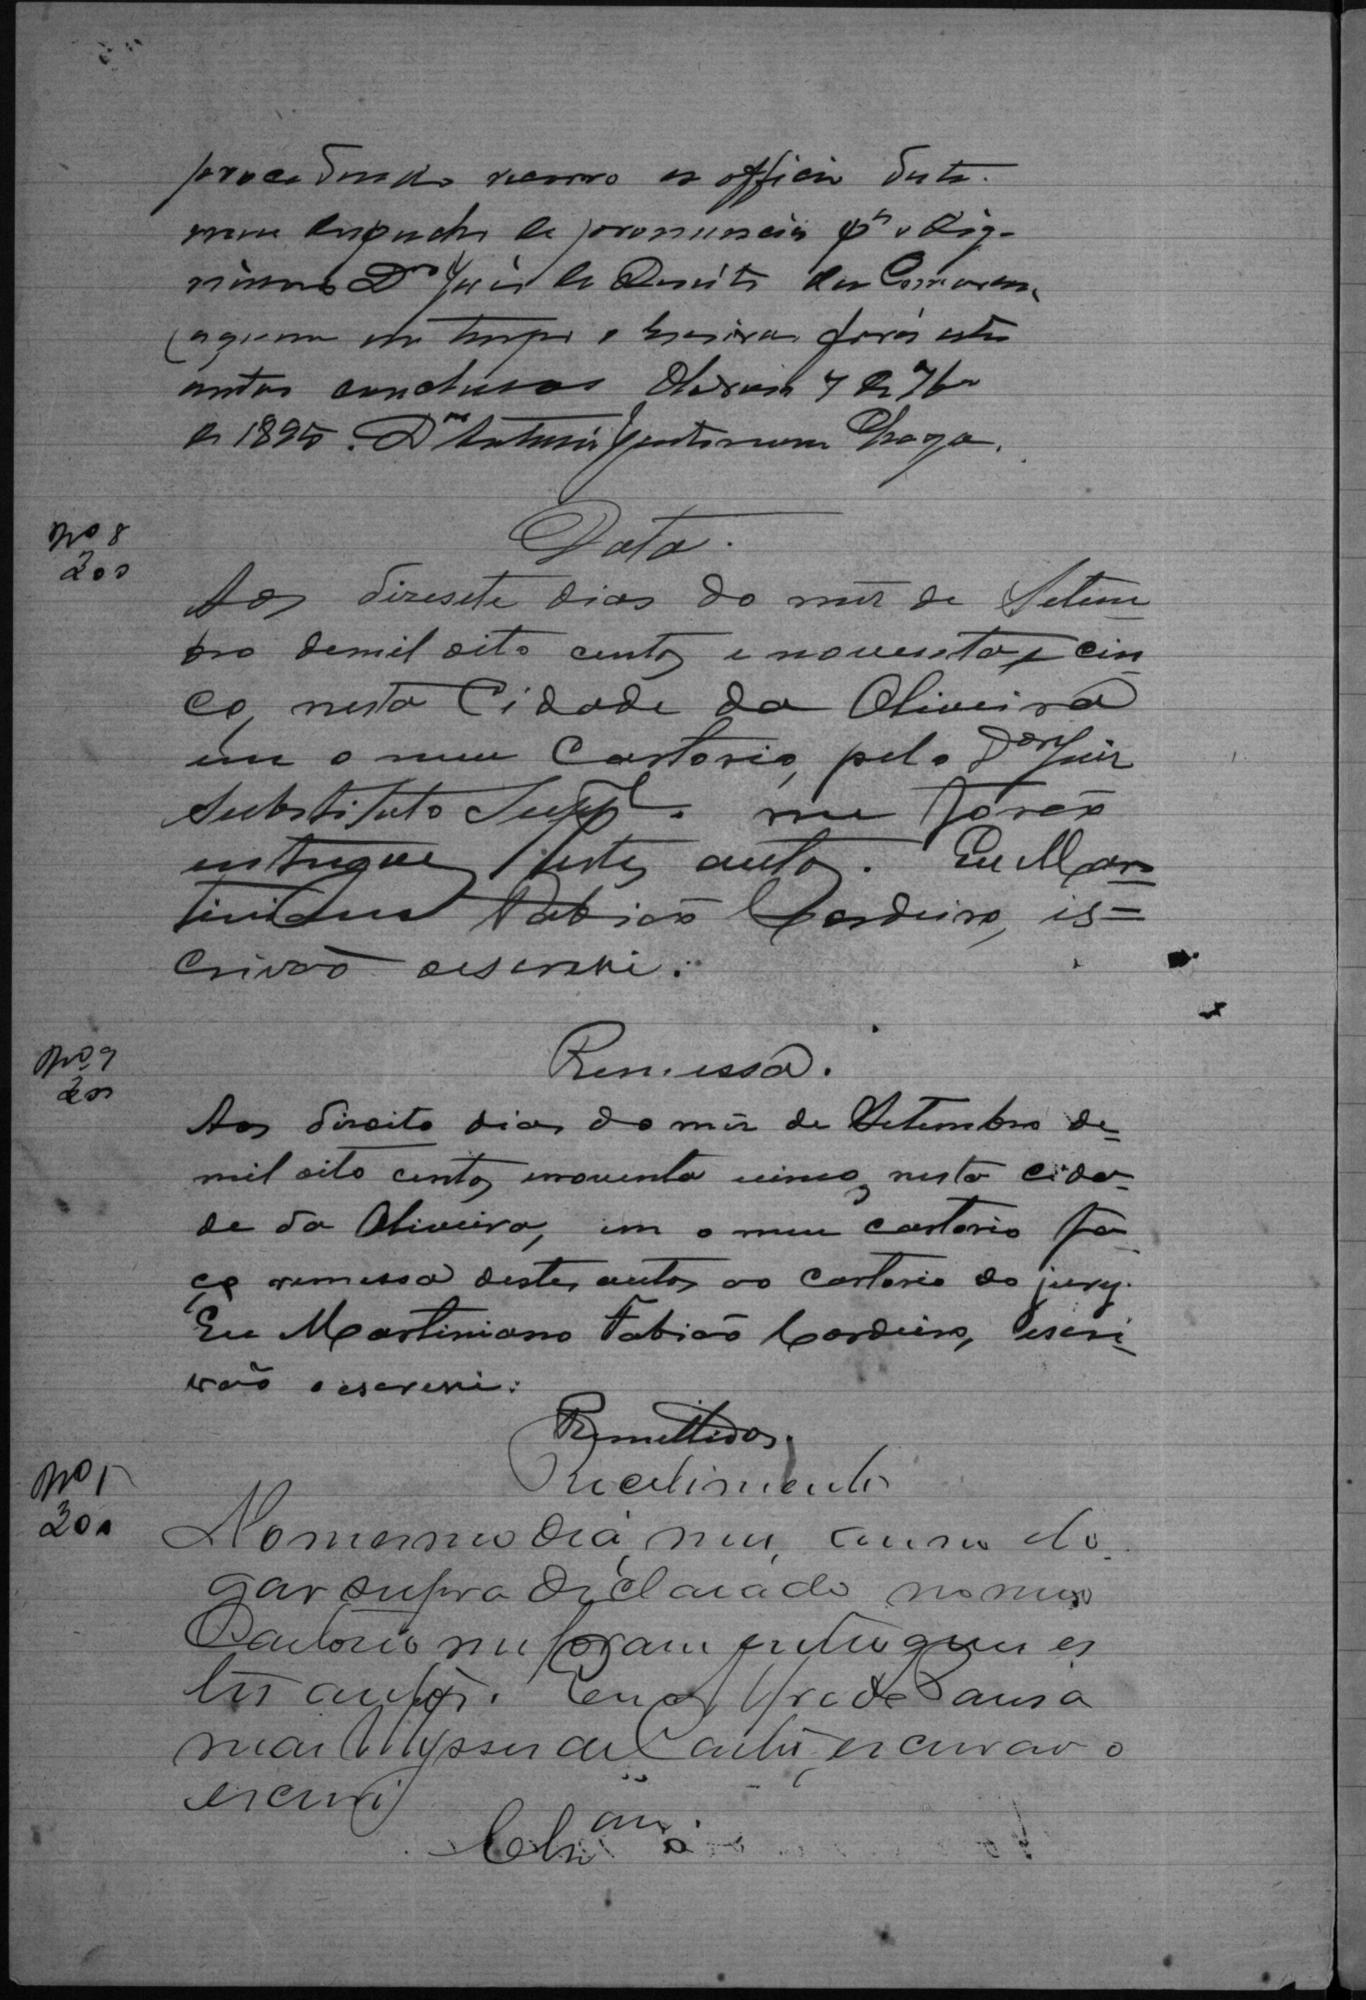 procedendo recorro ex officio deste
meu despacho de pronuncia pª o Dig-
nissimo Dr Juiz de Direito da Comarca,
a quem em tempo o Escrivão fará estes
autos conclusos Oliveira 7 de 7bro
de 1895. Dr Antonio Justiniano Chagas.
Nº 8
200
Data.
Aos diresete dias do mez de Setem
bro demil oito centos e noventa e cin
co, nesta Cidade da Oliveira
em o meu Cartorio, pelo Dor Juiz
Substituto Suppl. me forão
entregues estes autos. Eu Mar=
tiniano Fabião Cordeiro, es=
crivão oescrevi.
Nº 9
200
Remessa.
Aos diroito dias do mez de Setembro de=
mil oito centos enoventa ecinco, nesta cida-
de da Oliveira, em o meu cartorio fa
ço remessa destes autos ao cartorio do jury.
Eu Martiniano Fabião Cordeiro, escri=
vão o escrevi.
Remettidos.
Nº 1
200
Recebimento
No mesmo dia, mez, anno e lo-
gar supra declarado no meu
Cartorio me foram entregues es
tes autos. Eu Alfredo
Ulysses de Castro, escrivão o
escrevi
Clsam